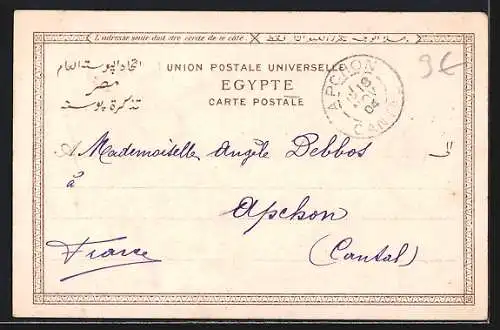 L'adresse seule doit être écrite de ce côté.
اتحاد البوسته العام
مصر
تذكرة بوسته
UNION POSTALE UNIVERSELLE
EGYPTE
CARTE POSTALE
APCHON
18
NOV
04
CANTAL
9€
A Mademoiselle Angèle Debbos
à
Apchon
(Cantal)
France